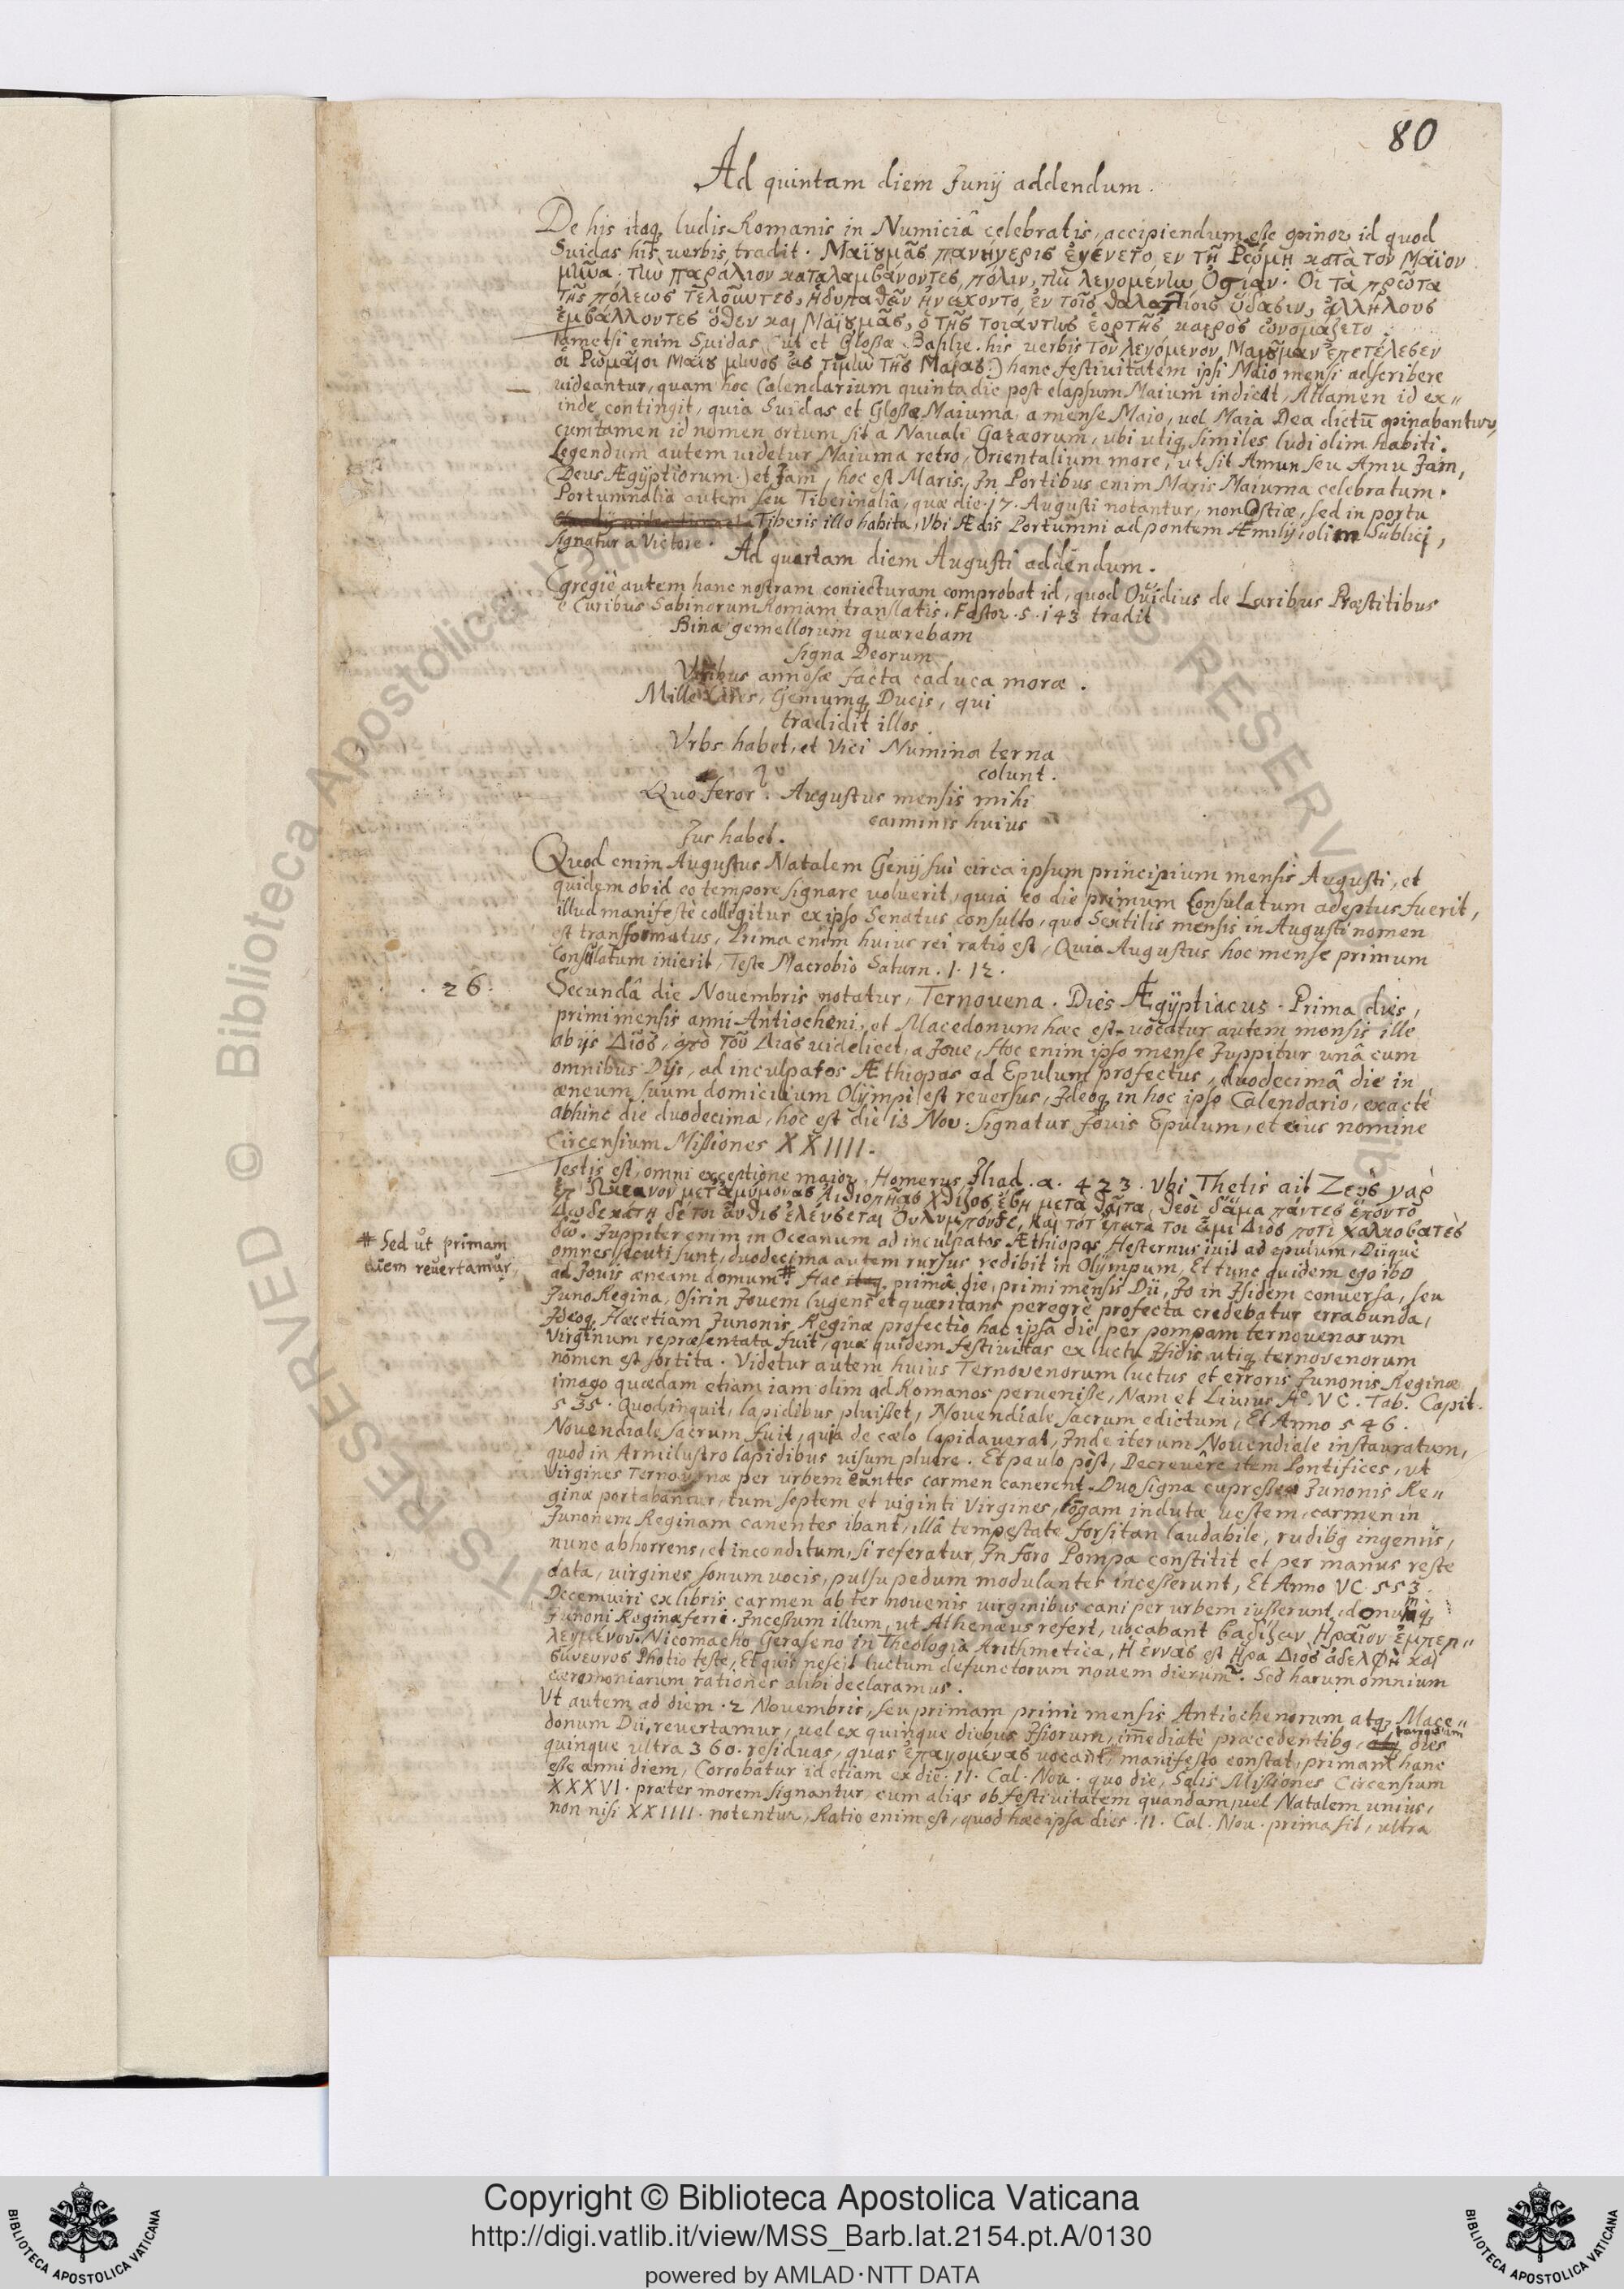 80
Ad quintam diem Junij addendum.
De his itaq ludis Romanis in Numiciâ celebratis, accipiendum esse opinor id quod
Suidas his verbis tradit. Μαϊȣμᾶς πανήγερις ἐγένετο, εν τῆ Ρώμη κατὰ τὸν Μάϊον
μῆνα. τὴν παράλιον καταλαμβάνοντες, πόλιν, τὴν λεγομένην Ὀστίαν. Οἱ τὰ πρῶτα
τῆς πόλεως τελοῦντες, ἡδυπαθεῖν ἠνείχοντο, ἐν τοῖς θαλαττίοις ὕδασιν, ἀλλήλους
ἐμβάλλοντες ὅθεν και Μαϊȣμᾶς, ὁ τῆς τοιαύτης ἑορτῆς καιρος ὠνομάζετο
Tametsi enim Suidas (ut et Glossæ Basilic. his verbis Τὸν λεγόμενον Μαιȣμαν ἐπετέλεσεν
οἱ Ρωμαῖοι Μαΐȣ μηνος εἰς τιμὴν τῆς Μαίας:) hanc festivitatem ipsi Maio mensi adscribere
videantur, quam hoc Calendarium quinta die post elapsum Maium indicat, Attamen id ex„
inde contingit, quia Suidas et Glossæ Maiuma, a mense Maio, vel Maia Dea dictū opinabantur,
cum tamen id nomen ortum sit a Navali Gazæorum, ubi utiq similes ludi olim habiti.
Legendum autem videtur Maiuma retro, Orientalium more, ut sit Amun seu Amu Jam,
(Deus Ægÿptiorum.) et Jam, hoc est Maris. In Portibus enim Maris Maiuma celebratum.
Portumnalia autem seu Tiberinalia, quæ die 17. Augusti notantur, non Ostiæ, sed in portu
Tiberis illo habita, Vbi Ædis Portumni ad pontem Æmilij olim Sublici,
signatur a Victore.
Ad quartam diem Augusti addendum.
Egregiè autem hanc nostram coniecturam comprobat id, quod Ovidius de Laribus Præstitibus
e Curibus Sabinorum Romam translatis, Fastor. 5. 143 tradit
Bina gemellorum quærebam
signa Deorum
Viribus annosæ facta caduca moræ.
Mille Lares, Geniumq Ducis, qui
tradidit illos
Vrbs habet, et Vici Numina terna
colunt.
Quo feror? Augustus mensis mihi
carminis huius
Jus habet.
Quod enim Augustus Natalem Genij sui circa ipsum principium mensis Augusti, et
quidem ob id eo tempore signare voluerit, quia eo die primum Consulatum adeptus fuerit,
illud manifestè collegitur ex ipso Senatus consulto, quo Sextilis mensis in Augusti nomen
est transformatus, Prima enim huius rei ratio est, Quia Augustus hoc mense primum
Consulatum inierit, Teste Macrobio Saturn. 1. 12.
. 26.
Secundâ die Novembris notatur, Ternovena. Dies Ægÿptiacus. Prima dies,
primi mensis anni Antiocheni, et Macedonum hæc est, vocatur autem mensis ille
ab ijs Δῖος, ἀπὸ τοῦ Διας videlicet, a Jove, Hoc enim ipso mense Juppitur unâ cum
omnibus Dijs, ad inculpatos Æthiopas ad Epulum profectus, duodecimâ die in
æneum suum domicilium Olÿmpi est reversus, Ideoq in hoc ipso Calendario, exactè
abhinc die duodecima, hoc est die 13 Nov: signatur Jovis Epulum, et eius nomine
Circensium Missiones XXIIII.
Testis est, omni exceptione maior, Homerus Iliad. α. 423. Vbi Thetis ait Ζεὺς γαρ
ἐπ Ὠκεανον μετ ἀμύμονας Αιθιοπῆας χθιζὸς ἔβη μετὰ δαῖτα, θεοὶ δ᾽ἅμα πάντες ἕποντο
Δωδεκάτη δέ τοι αὖθις ἐλεύσεται Οὐλυμπόνδε, Καὶ τότ ἔπειτά τοι εἶμι Διὸς ποτὶ χαλκοβατὲς
δῶ. Juppiter enim in Oceanum ad inculpatos Æthiopas Hesternus ivit ad epulum, Diique
omnes secuti sunt, duodecima autem rursus redibit in Olÿmpum, Et tunc quidem ego ibo
# Sed ut primam
diem revertamur,
ad Jovis æneam domum. # Hac itaq primâ die, primi mensis Dii, Jo in Isidem conversa, seu
Juno Regina, Osirin Jovem lugens et quæritans peregrè profecta credebatur errabunda,
Ideoq Hæc etiam Junonis Reginæ profectio hac ipsa die per pompam ternovenarum
Virginum repræsentata fuit, quæ quidem festivitas ex luctu Isidis utiq ternovenorum
nomen est sortita. Videtur autem huius Ternovenorum luctus et erroris Junonis Reginæ
imago quædam etiam iam olim ad Romanos pervenisse, Nam et Livius Aº. VC. Tab. Capit.
535. Quod, inquit, lapidibus pluisset, Novendiale sacrum edictum, Et Anno 546.
Novendiale sacrum fuit, quia de cælo lapidaverat, Inde iterum Novendiale instauratum,
quod in Armilustro lapidibus visum pluere. Et paulo pòst, Decrevêre item Pontifices, ut
Virgines Ternovenæ per urbem euntes carmen canerent. Duo signa cupressea Junonis Re„
ginæ portabantur, tum septem et viginti Virgines, longam indutæ vestem, carmen in
Junonem Reginam canentes ibant, illâ tempestate forsitan laudabile, rudibq ingeniis,
nunc abhorrens, et inconditum, si referatur, In foro Pompa constitit et per manus reste
data, virgines sonum vocis, pulsu pedum modulantes incesserunt, Et Anno VC 553.
Decemviri ex libris carmen ab ter novenis virginibus cani per urbem iusserunt, donumq,
Junoni Reginæ ferri. Incessum illum, ut Athenæus refert, vocabant βαδίζειν Ηραῖον ἐμπεπ„
λεγμένον. Nicomacho Geraseno in Theologia Arithmetica, Ἡ ἐννὰς est Ηρα Διος ἀδελφὴ και
σύνευνος Photio teste, Et quis nescit luctum defunctorum novem dierum? Sed harum omnium
cæremoniarum rationes alibi declaramus.
Vt autem ad diem. 2 Novembris, seu primam primi mensis Antiochenorum atq Mace„
donum Dii revertamur, vel ex quinque diebus Isiorum, im̄ediatè præcedentibq dies
quinque ultra 360. residuas, quas ἐπαγομενας vocant, manifesto constat, primam hanc
esse anni diem, Corrobatur id etiam ex die. 11. Cal. Nov. quo die, Solis Missiones Circensium
XXXVI. præter morem signantur, cum aliàs ob festivitatem quandam, vel Natalem unius,
non nisi XXIIII. notentur, Ratio enim est, quod hæc ipsa dies. 11. Cal. Nov. prima sit, ultra
Copyright © Biblioteca Apostolica Vaticana
http://digi.vatlib.it/view/MSS_Barb.lat.2154.pt.A/0130
powered by AMLAD·NTT DATA
BIBLIOTECA APOSTOLICA VATICANA
BIBLIOTECA APOSTOLICA VATICANA